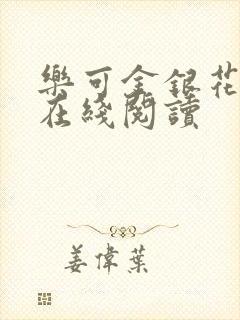 樂可金銀花
在綫閱讀
姜偉葉